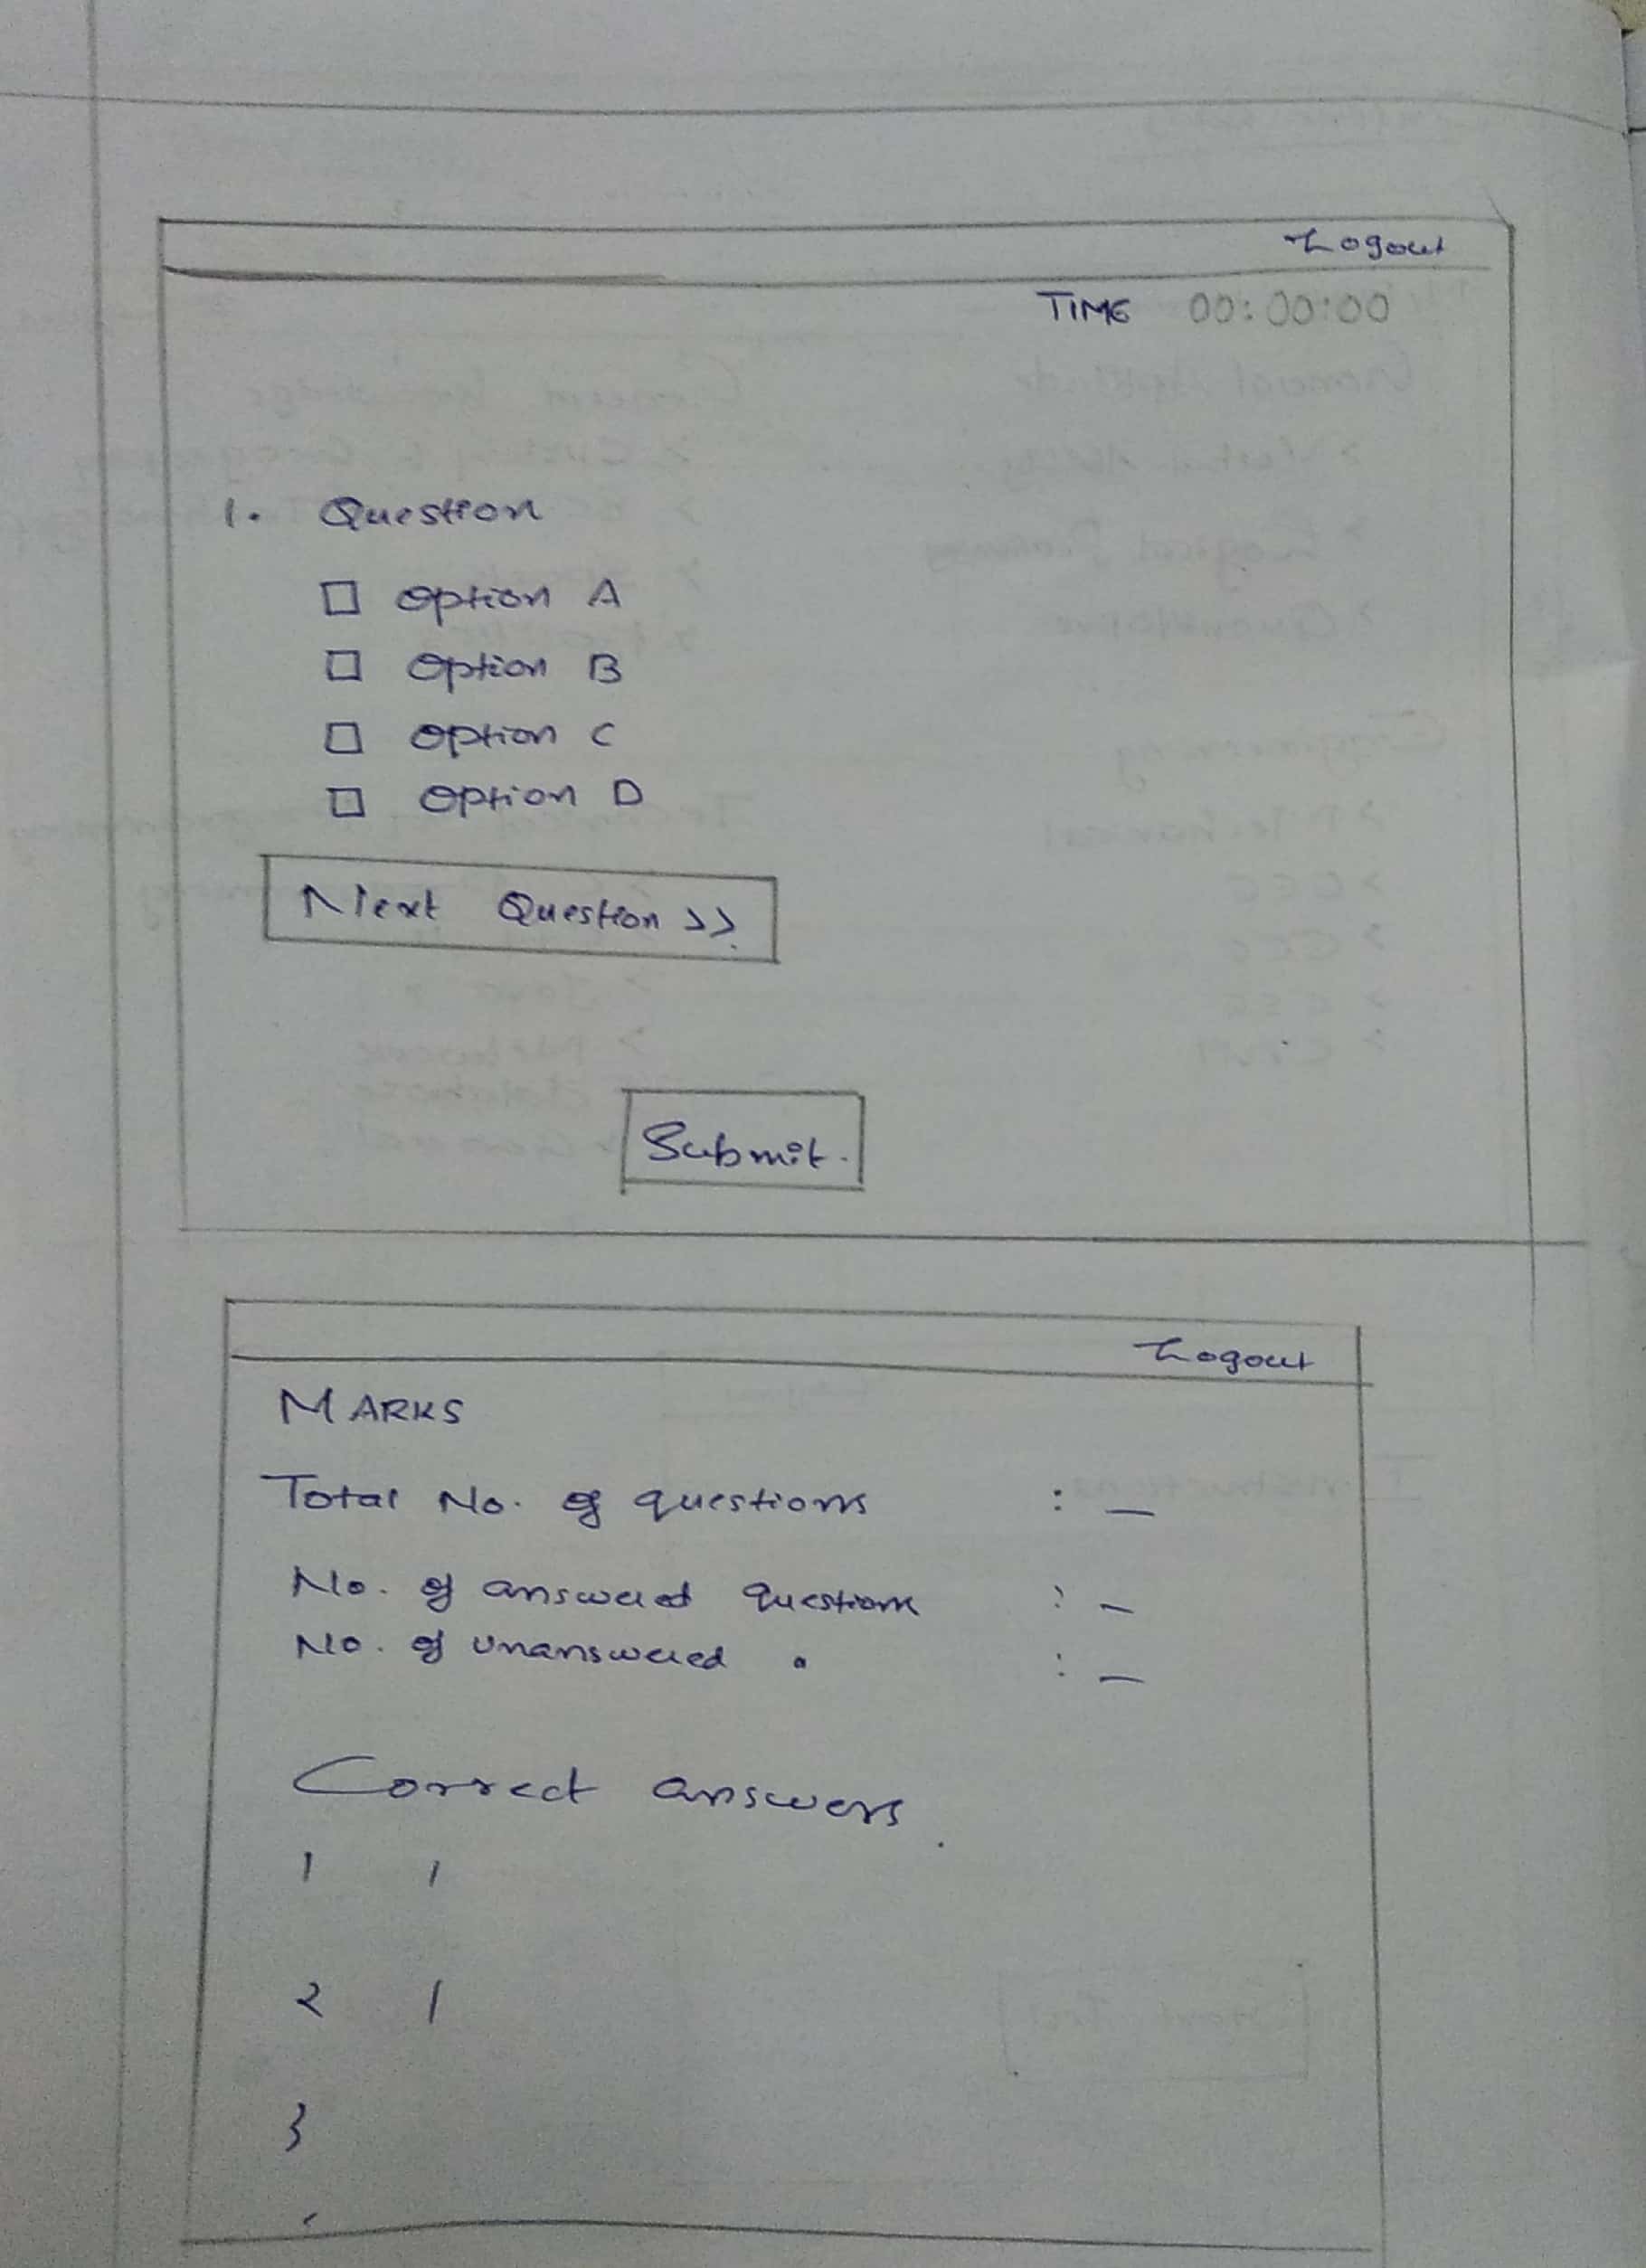 Logout
TIME 00:00:00
1. Question
Option A
Option B
Option C
Option D
Next Question >>
Submit.
Logout
MARKS
Total No. of questions : _
No. of answered questions : _
No. of unanswered " : _
Correct answers
1 1
2 1
3